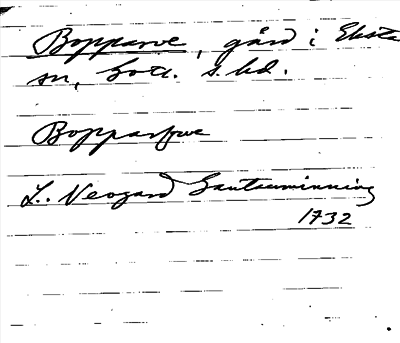 Bopparve, gård i Eksta
sn, Gotl. s. hd.
Bopparfwe
L. Neogard Gautauminning
1732